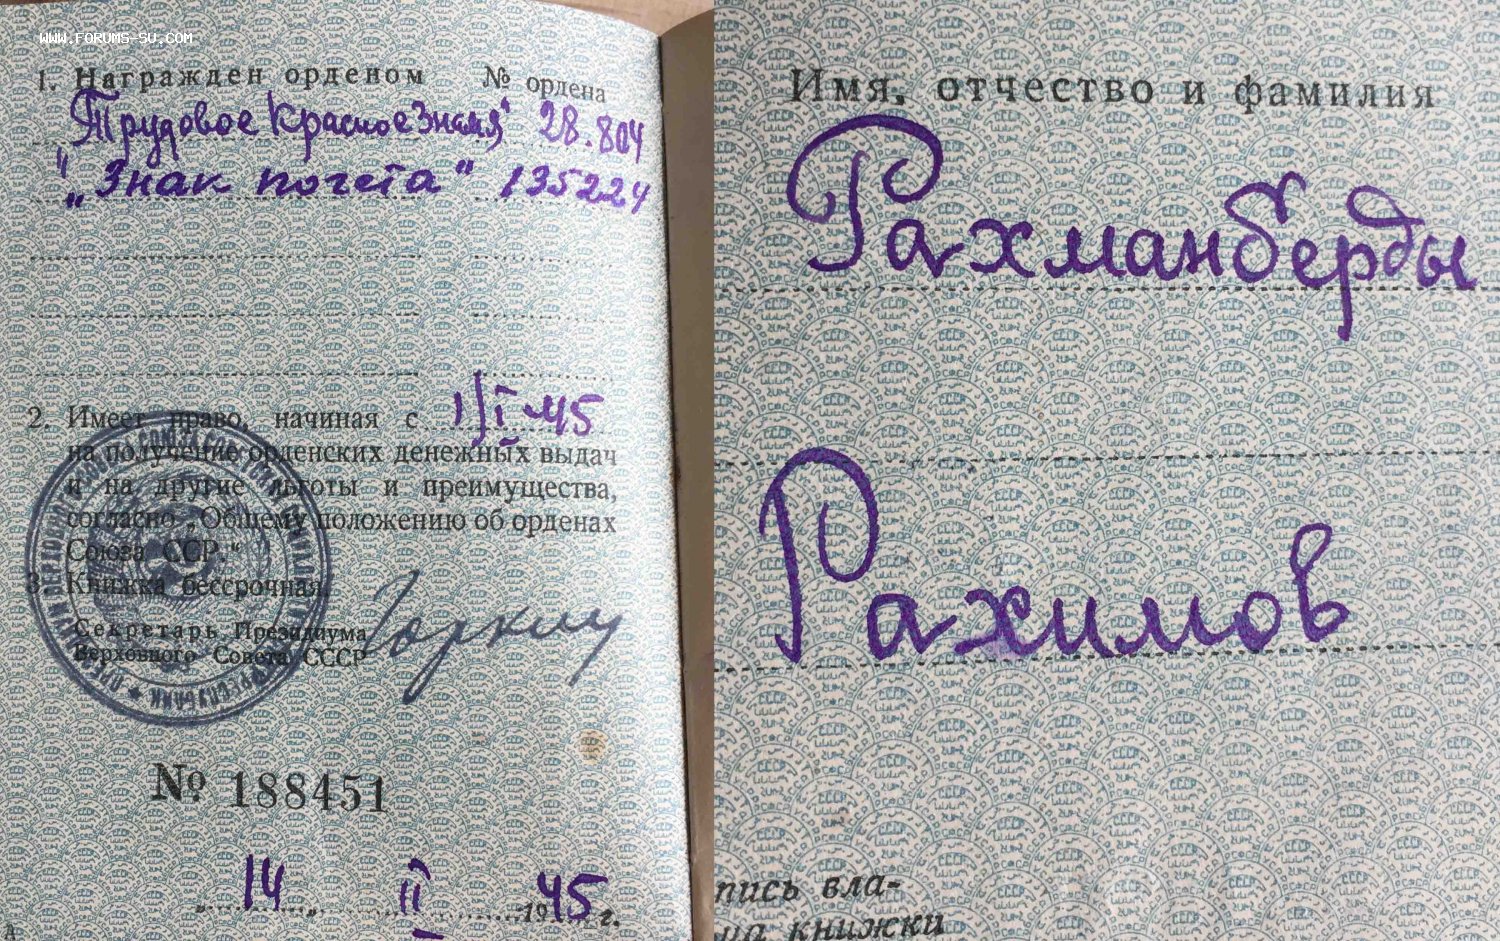 WWW.FORUMS-SU.COM
1. Награжден орденом № ордена
"Трудовое Красное Знамя" 28.804
„Знак почета" 135224
2. Имеет право, начиная с 1/I-45
на получение орденских денежных выдач
и на другие льготы и преимущества,
согласно „Общему положению об орденах
Союза ССР."
3. Книжка бессрочная.
Секретарь Президиума
Верховного Совета СССР
Горкин
№ 188451
„14" II 1945 г.
Имя, отчество и фамилия
Рахманберды
Рахимов
пись вла-
ца книжки